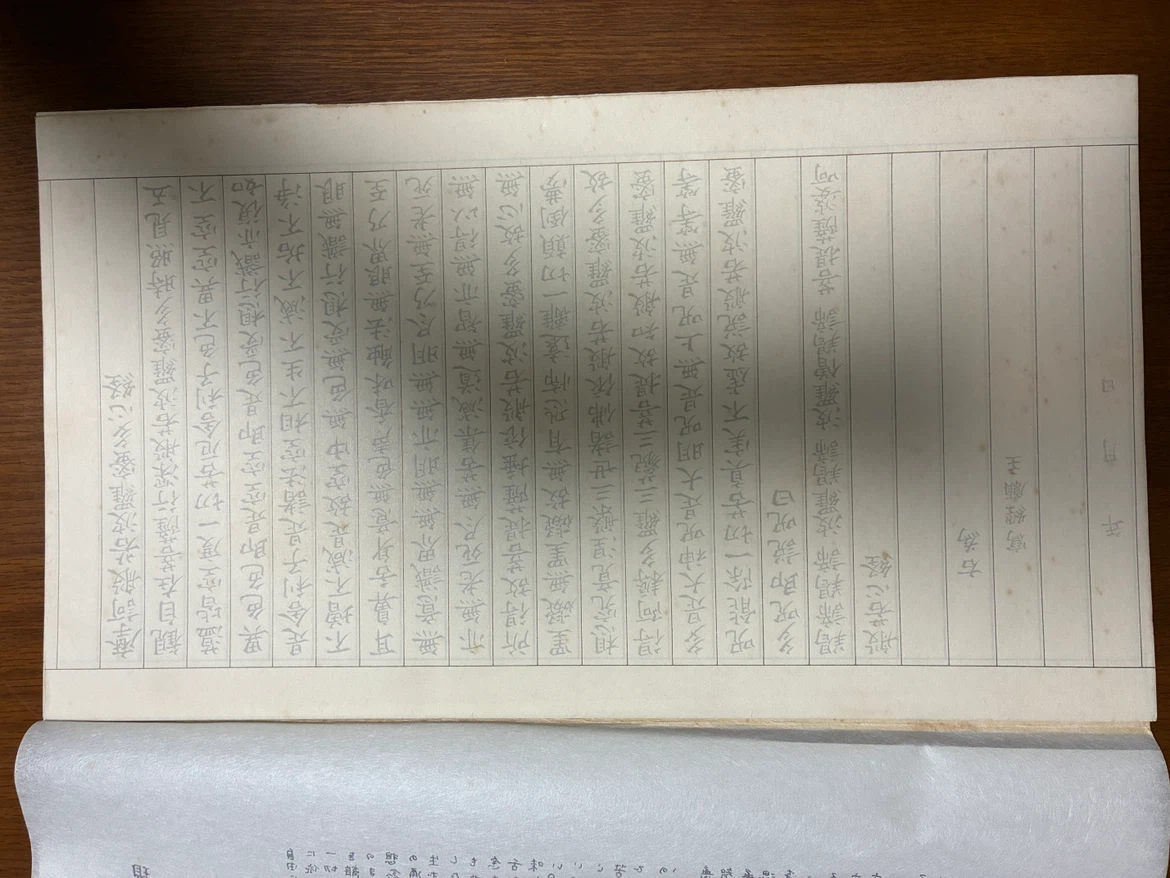 摩訶般若波羅蜜多心経
観自在菩薩行深般若波羅蜜多時照見五
蘊皆空度一切苦厄舎利子色不異空空不
異色色即是空空即是色受想行識亦復如
是舎利子是諸法空相不生不滅不垢不浄
不増不減是故空中無色無受想行識無眼
耳鼻舌身意無色声香味触法無眼界乃至
無意識界無無明亦無無明尽乃至無老死
亦無老死尽無苦集滅道無智亦無得以無
所得故菩提薩埵依般若波羅蜜多故心無
罣礙無罣礙故無有恐怖遠離一切顛倒夢
想究竟涅槃三世諸佛依般若波羅蜜多故
得阿耨多羅三藐三菩提故知般若波羅蜜
多是大神呪是大明呪是無上呪是無等等
呪能除一切苦真実不虚故説般若波羅蜜
多呪即説呪曰
羯諦羯諦波羅羯諦波羅僧羯諦菩提薩婆訶
般若心経
右為
写経願主
年 月 日